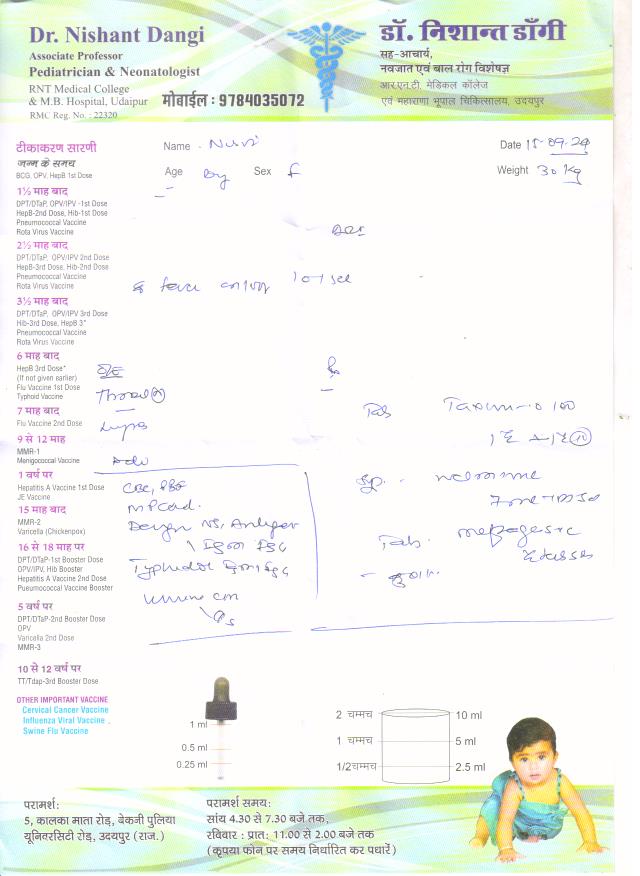 Dr. Nishant Dangi
Associate Professor
Pediatrician & Neonatologist
RNT Medical College
& M.B. Hospital, Udaipur
RMC Reg. No. : 22320
मोबाईल : 9784035072
डॉ. निशान्त डाँगी
सह-आचार्य,
नवजात एवं बाल रोग विशेषज्ञ
आर.एन.टी. मेडिकल कॉलेज
एवं महाराणा भूपाल चिकित्सालय, उदयपुर
Name
Date 15-09-24
Age Sex F
Weight 30 Kg
टीकाकरण सारणी
जन्म के समय
BCG, OPV, HepB 1st Dose
1½ माह बाद
DPT/DTaP, OPV/IPV -1st Dose
HepB-2nd Dose, Hib-1st Dose
Pneumococcal Vaccine
Rota Virus Vaccine
2½ माह बाद
DPT/DTaP, OPV/IPV 2nd Dose
HepB-3rd Dose, Hib-2nd Dose
Pneumococcal Vaccine
Rota Virus Vaccine
3½ माह बाद
DPT/DTaP, OPV/IPV 3rd Dose
Hib-3rd Dose, HepB 3*
Pneumococcal Vaccine
Rota Virus Vaccine
6 माह बाद
HepB 3rd Dose*
(If not given earlier)
Flu Vaccine 1st Dose
Typhoid Vaccine
7 माह बाद
Flu Vaccine 2nd Dose
9 से 12 माह
MMR-1
Menigococcal Vaccine
1 वर्ष पर
Hepatitis A Vaccine 1st Dose
JE Vaccine
15 माह बाद
MMR-2
Varicella (Chickenpox)
16 से 18 माह पर
DPT/DTaP-1st Booster Dose
OPV/IPV, Hib Booster
Hepatitis A Vaccine 2nd Dose
Pueumococcal Vaccine Booster
5 वर्ष पर
DPT/DTaP-2nd Booster Dose
OPV
Varicella 2nd Dose
MMR-3
10 से 12 वर्ष पर
TT/Tdap-3rd Booster Dose
OTHER IMPORTANT VACCINE
Cervical Cancer Vaccine
Influenza Viral Vaccine
Swine Flu Vaccine
O/E
Throat
CBC, PBF
MP Card.
Dengue NS, Antigen
IgM IgG
Typhidot IgM IgG
Urine
Tab Taxim-O 100
Syp.
Tab.
1 ml
0.5 ml
0.25 ml
2 चम्मच 10 ml
1 चम्मच 5 ml
1/2चम्मच 2.5 ml
परामर्श:
5, कालका माता रोड़, बेकनी पुलिया
यूनिवरसिटी रोड़, उदयपुर (राज.)
परामर्श समय:
सांय 4.30 से 7.30 बजे तक,
रविवार : प्रात: 11.00 से 2.00 बजे तक
(कृपया फोन पर समय निर्धारित कर पधारें)